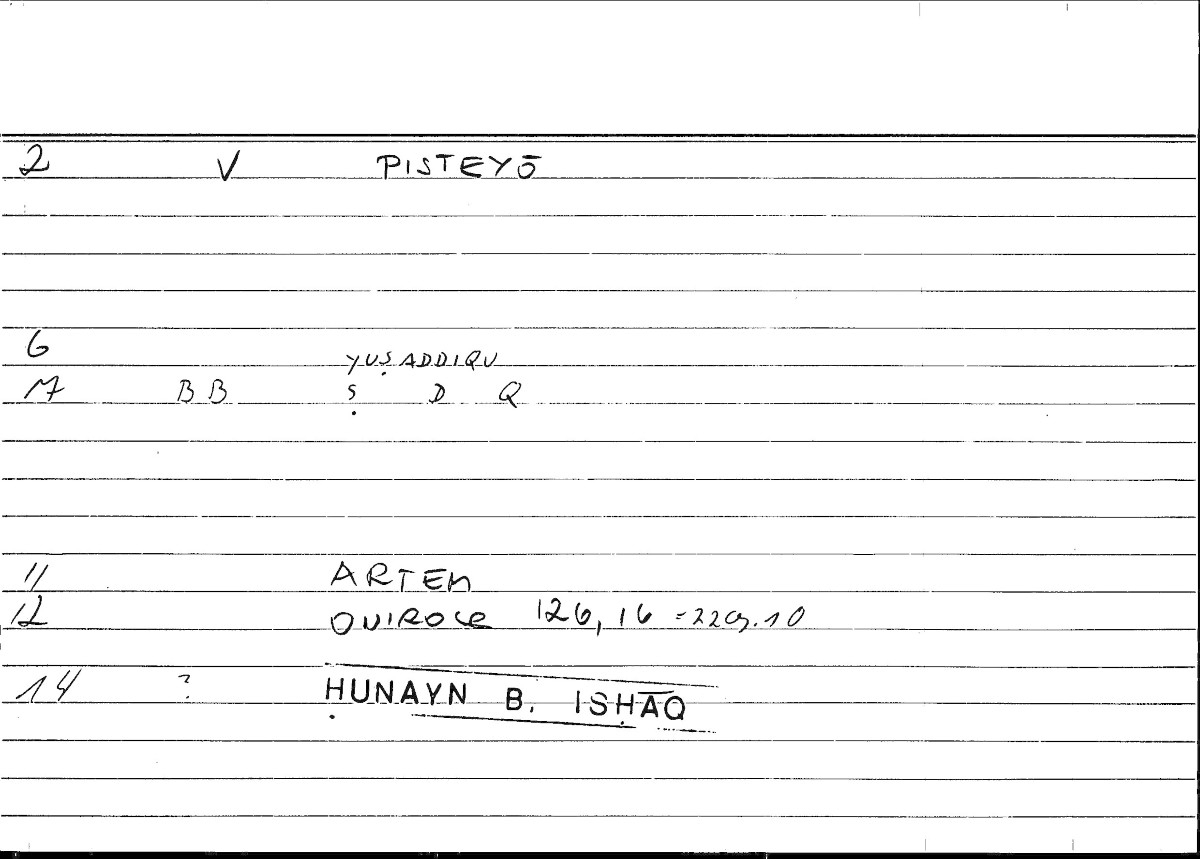 2 V PISTEYŌ
6
YUṢADDIQU
M BB Ṣ D Q
11 ARTEM
12 OVIROCR 126,16 =229.10
14 ? ḤUNAYN B. ISḤĀQ